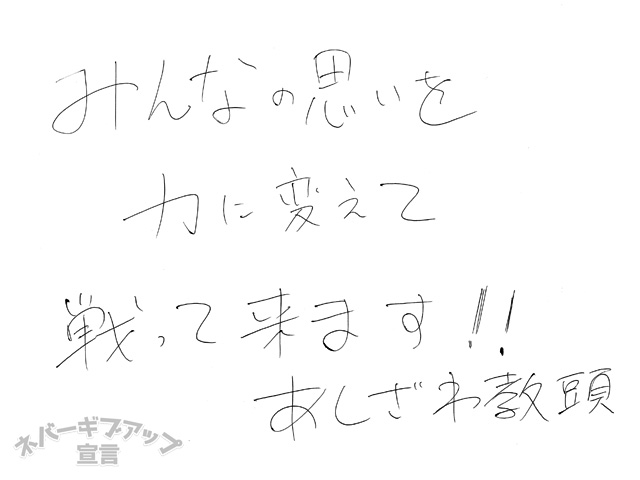 みんなの思いを
力に変えて
戦って来ます!!
あしざわ教頭
ネバーギブアップ
宣言